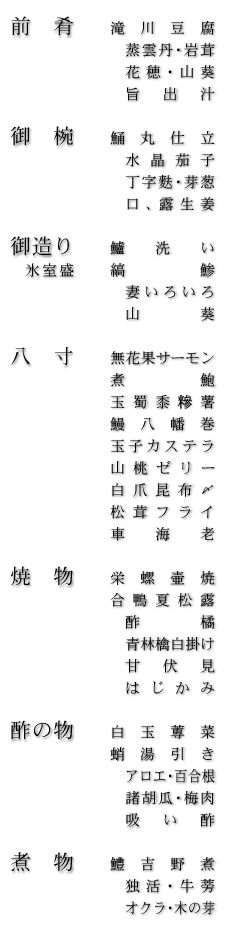 前肴 滝川豆腐
蒸雲丹・岩茸
花穂・山葵
旨出汁
御椀 鯒丸仕立
水晶茄子
丁字麩・芽葱
口、露生姜
御造り 鱸洗い
氷室盛 縞鯵
妻いろいろ
山葵
八寸 無花果サーモン
煮鮑
玉蜀黍糝薯
鰻八幡巻
玉子カステラ
山桃ゼリー
白爪昆布〆
松茸フライ
車海老
焼物 栄螺壷焼
合鴨夏松露
酢橘
青林檎白掛け
甘伏見
はじかみ
酢の物 白玉蓴菜
蛸湯引き
アロエ・百合根
諸胡瓜・梅肉
吸い酢
煮物 鱧吉野煮
独活・牛蒡
オクラ・木の芽